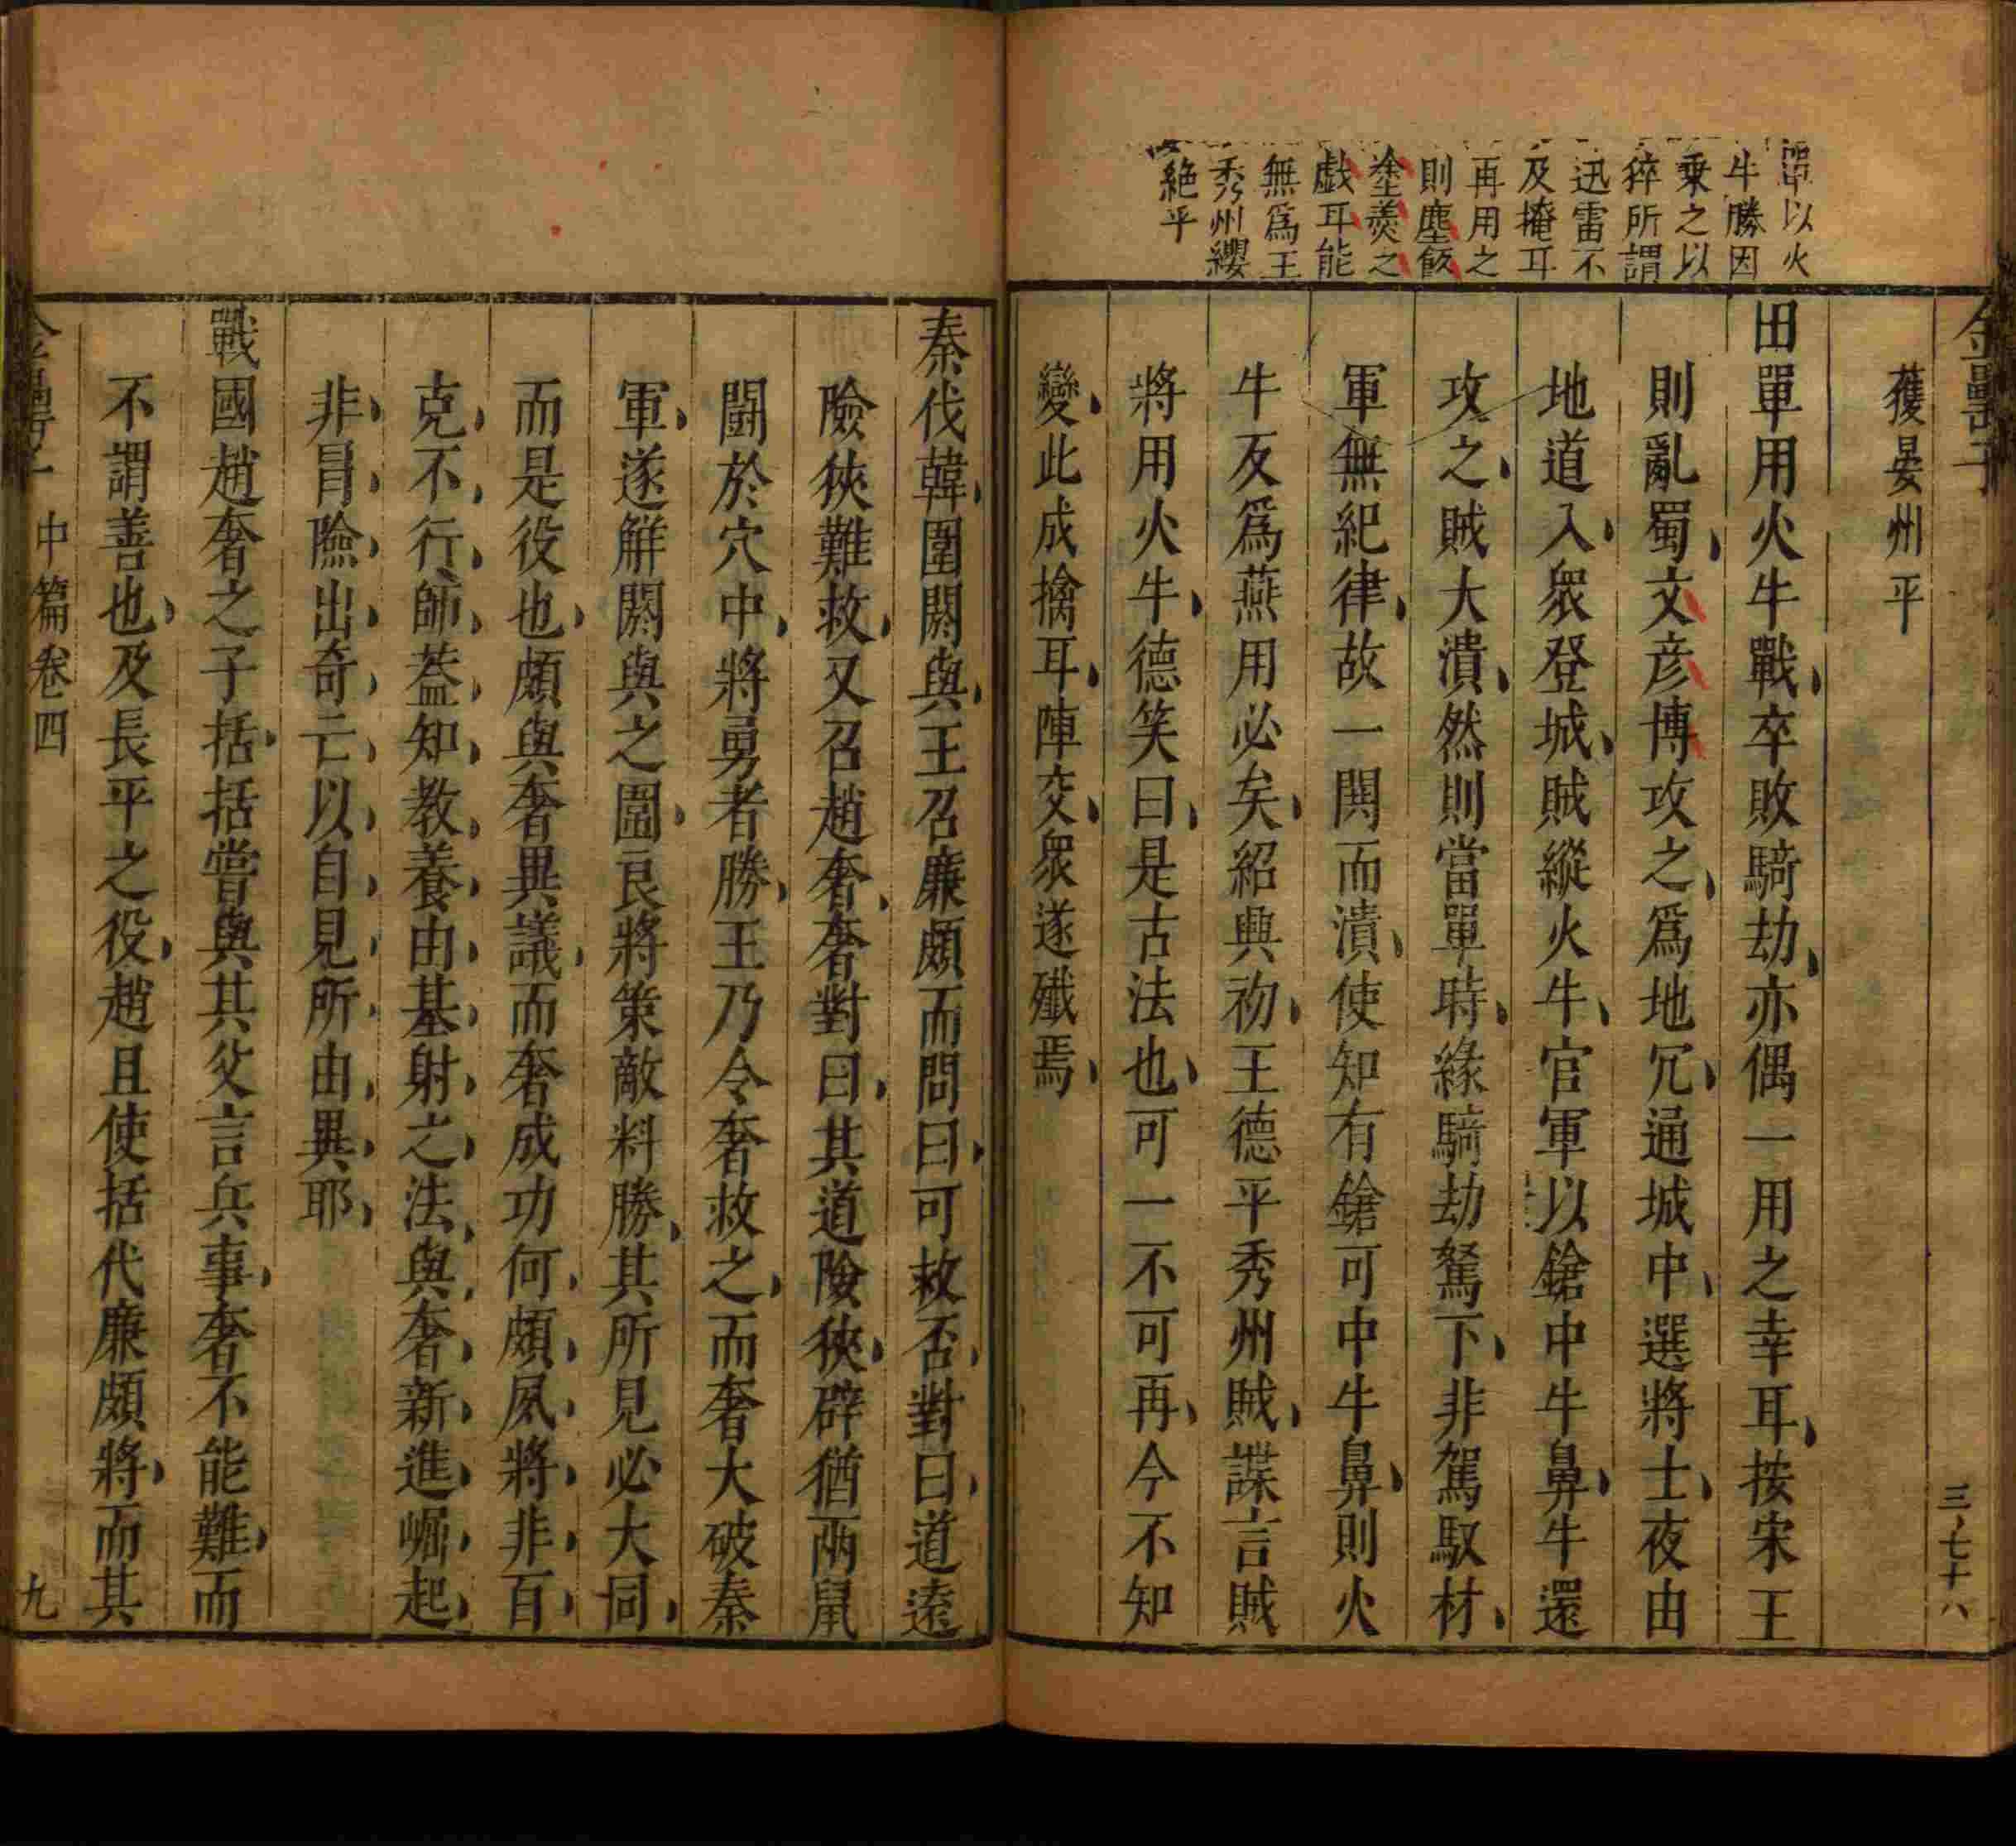 金罍子
三七十八
單以火
牛勝因
乗之以
猝所謂
迅雷不
及掩耳
再用之
則塵飯
塗羮之
戯耳能
無爲王
秀州纓
絶乎
獲晏州平
田單用火牛戰卒敗騎劫亦偶一用之幸耳按宋王
則亂蜀文彦博攻之爲地冗通城中選將士夜由
地道入衆登城賊縱火牛官軍以鎗中牛鼻牛還
攻之賊大潰然則當單時緣騎劫駑下非駕馭材
軍無紀律故一鬨而潰使知有鎗可中牛鼻則火
牛反爲燕用必矣紹興初王德平秀州賊諜言賊
將用火牛德笑曰是古法也可一不可再今不知
變此成擒耳陣交衆遂殲焉
秦伐韓圍閼與王召廉頗而問曰可救否對曰道遠
險狹難救又召趙奢奢對曰其道險狹辟猶兩鼠
鬭於穴中將勇者勝王乃令奢救之而奢大破秦
軍遂解閼與之圖良將策敵料勝其所見必大同
而是役也頗與奢異議而奢成功何頗夙將非百
克不行師葢知教養由基射之法與奢新進崛起
非冐險出奇亡以自見所由異耶
戰國趙奢之子括括嘗與其父言兵事奢不能難而
不謂善也及長平之役趙且使括代廉頗將而其
金罍子 中篇卷四
九